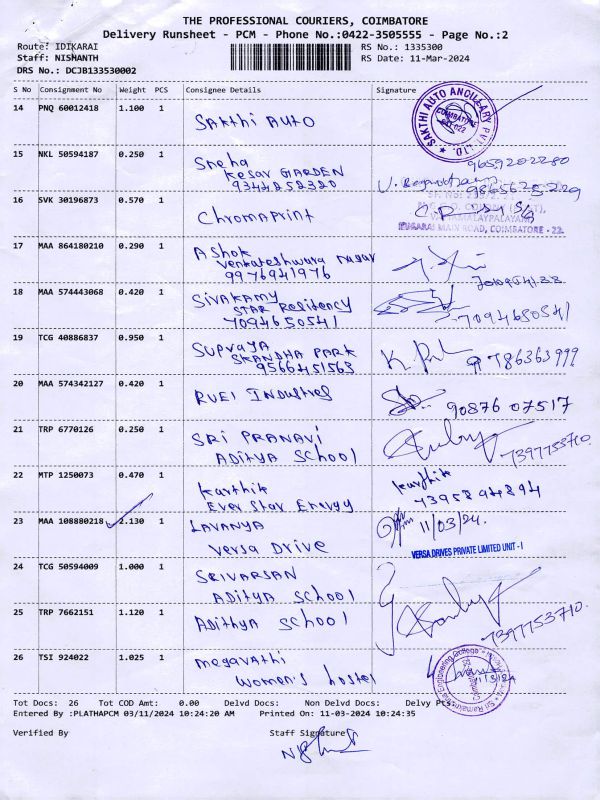 THE PROFESSIONAL COURIERS, COIMBATORE
Delivery Runsheet - PCM - Phone No.:0422-3505555 - Page No.:2
Route: IDIKARAI RS No.: 1335300
Staff: NISHANTH RS Date: 11-Mar-2024
DRS No.: DCJB133530002
S No Consignment No Weight PCS Consignee Details Signature
14 PNQ 60012418 1.100 1 SAKthi AUTO SAKTHI AUTO ANCILLARY PVT. LTD. COIMBATORE
15 NKL 50594187 0.250 1 Sneha 9659202280
Kesar GARDEN
9344252320 9865625229
16 SVK 30196873 0.570 1 Chromaprint
MAIN ROAD, COIMBATORE - 22.
17 MAA 864180210 0.290 1 Ashok
Venkateshwara nagar
9976941976
18 MAA 574443068 0.420 1 Sivakamy
STAR Resitency
7094650541 7094650541
19 TCG 40886837 0.950 1 Supraya
SKANDHA PARK
9566451563 9786363999
20 MAA 574342127 0.420 1 RUEI Industries 90876 07517
21 TRP 6770126 0.250 1 SRI PRANAVI
ADITYA School 7397753710
22 MTP 1250073 0.470 1 Karthik Karthik
Ever Star Energy 7395894894
23 MAA 108880218 2.130 1 LAVANYA 11/03/24.
Versa Drive VERSA DRIVES PRIVATE LIMITED UNIT - I
24 TCG 50594009 1.000 1 SRIVARSAN
ADITYA School
25 TRP 7662151 1.120 1 Adithya School 7397753710
26 TSI 924022 1.025 1 megavathi
Women's hostel
Tot Docs: 26 Tot COD Amt: 0.00 Delvd Docs: Non Delvd Docs: Delvy Pts:
Entered By :PLATHAPCM 03/11/2024 10:24:20 AM Printed On: 11-03-2024 10:24:35
Verified By Staff Signature